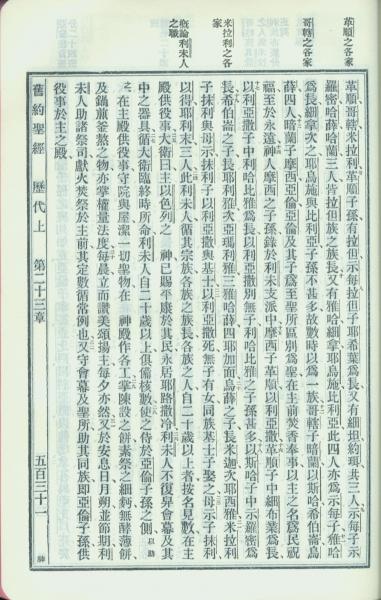 革順之各家
哥轄之各家
米拉利之各家
槪論利未人之職
革順哥轄米拉利革順子孫有拉但示每拉但子耶希業爲長又有細坦約琪共三人示每子示
羅密哈薛哈蘭三人皆拉但族之族長又有雅哈細拿耶烏施比利亞此四人亦爲示每子雅哈
爲長細拿次之耶烏施與比利亞子孫不甚多故數時以爲一族哥轄子暗蘭以斯哈希伯崙烏
薛四人暗蘭子摩西亞倫亞倫及其子爲至聖所區別爲聖在主前焚香奉事以主之名爲民祝
福至於永遠神人摩西之子孫錄於利未支派中摩西子革順以利亞撒革順子中細布業爲長
以利亞撒子中利哈比雅爲長以利亞撒別無子利哈比雅之子孫甚多以斯哈子中示羅密爲
長希伯崙之子長耶利雅次亞瑪利雅三雅哈薛四耶加面烏薛之子長米迦次耶西雅米拉利
子抹利與母示抹利子以利亞撒與基士以利亞撒死無子有女同族基士子娶之母示子抹利
以得耶利末三人此利未人循其宗族各族之族長各族之人自二十歲以上者按名見數在主
殿供役事大衛曰主以色列之 神已賜平康於其民永居耶路撒冷利未人不復舁會幕及其
中之器具循大衛臨終時所命利未人自二十歲以上俱備核數使之侍於亞倫子孫之側以助
之在主殿供役事守院與屋潔一切聖物在 神殿作各工掌陳設之餅素祭之細麪無酵薄餅
及鍋煎釜熬之物亦掌權量法度每晨立而讚美頌揚主每夕亦然又於安息日月朔並節期利
未人助諸祭司獻火焚祭於主前其定數循常例也又守會幕及聖所助其同族即亞倫子孫供
役事於主之殿
舊約聖經 歷代上 第二十三章 五百三十一